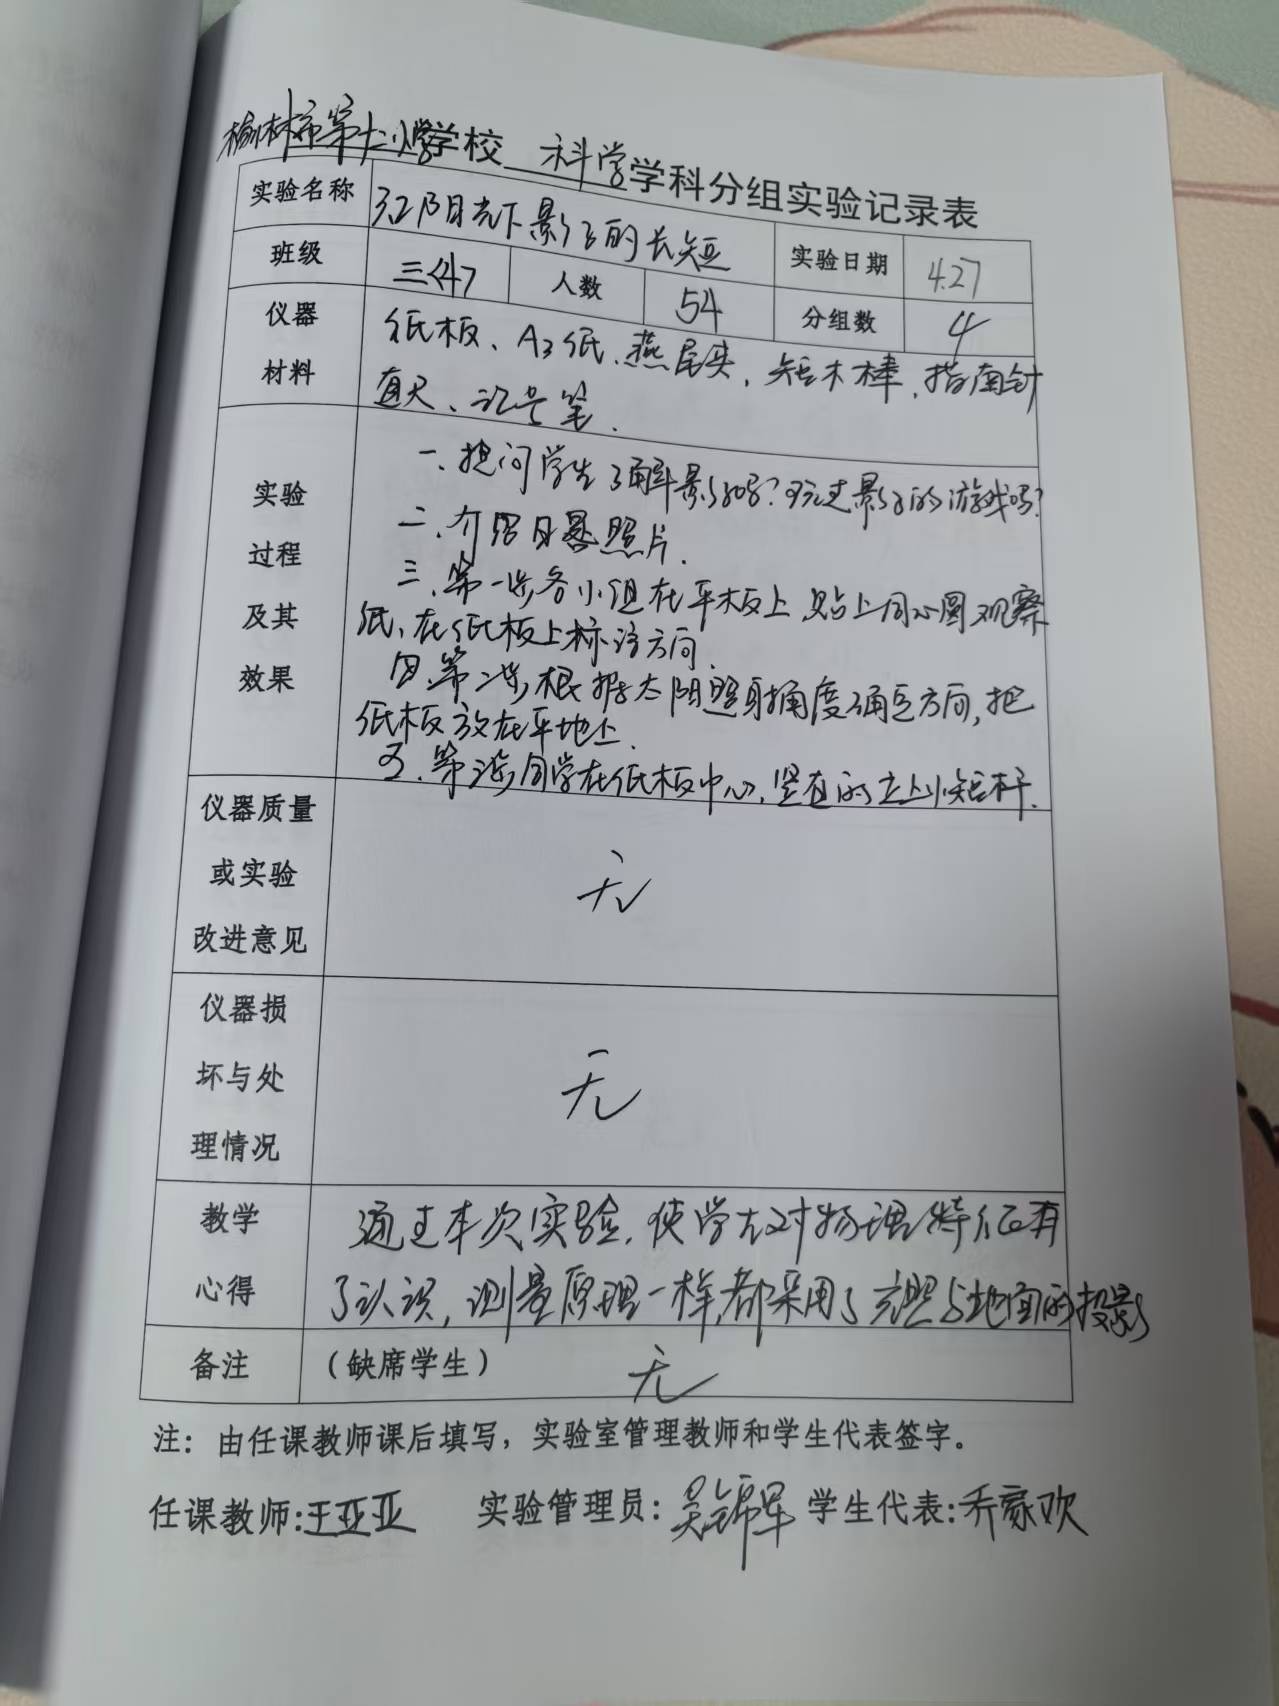 榆林市第十二小学学校 科学 学科分组实验记录表
实验名称 阳光下影子的长短 实验日期 4.27
班级 三<4> 人数 54 分组数 4
仪器 纸板、A3纸、燕尾夹、短木棒、指南针
材料 直尺、记号笔.
实验 一、提问学生了解影子吗?玩过影子的游戏吗?
过程 二、介绍日晷照片.
及其 三、第一步各小组在平板上贴上同心圆观察
效果 纸、在纸板上标注方向.
四、第二步根据太阳照射角度确定方向,把
纸板放在平地上.
五、第三步同学在纸板中心,竖直的立上小短杆.
仪器质量
或实验 无
改进意见
仪器损
坏与处 无
理情况
教学 通过本次实验,使学生对物理特征有
心得 了认识,测量原理一样,都采用了光照与地面的投影
备注 (缺席学生) 无
注:由任课教师课后填写,实验室管理教师和学生代表签字。
任课教师:王亚亚 实验管理员:吴锦军 学生代表:乔家欢